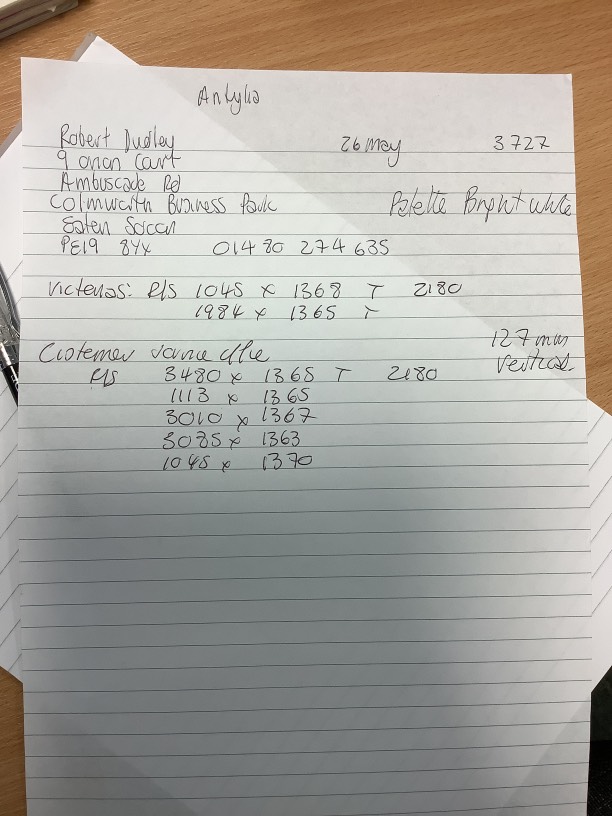 Antylia
Robert Dudley 26 May 3727
9 Orion Court
Ambuscade Rd
Colmworth Business Park Palette Bright white
Eaten Socon
PE19 8YX 01480 274 635
R/S 1045 x 1368 T 2180
1984 x 1365 T
127mm
Customer Service Office Vertical
R/S 3480 x 1365 T 2180
1113 x 1365
3010 x 1367
3035 x 1363
1045 x 1370